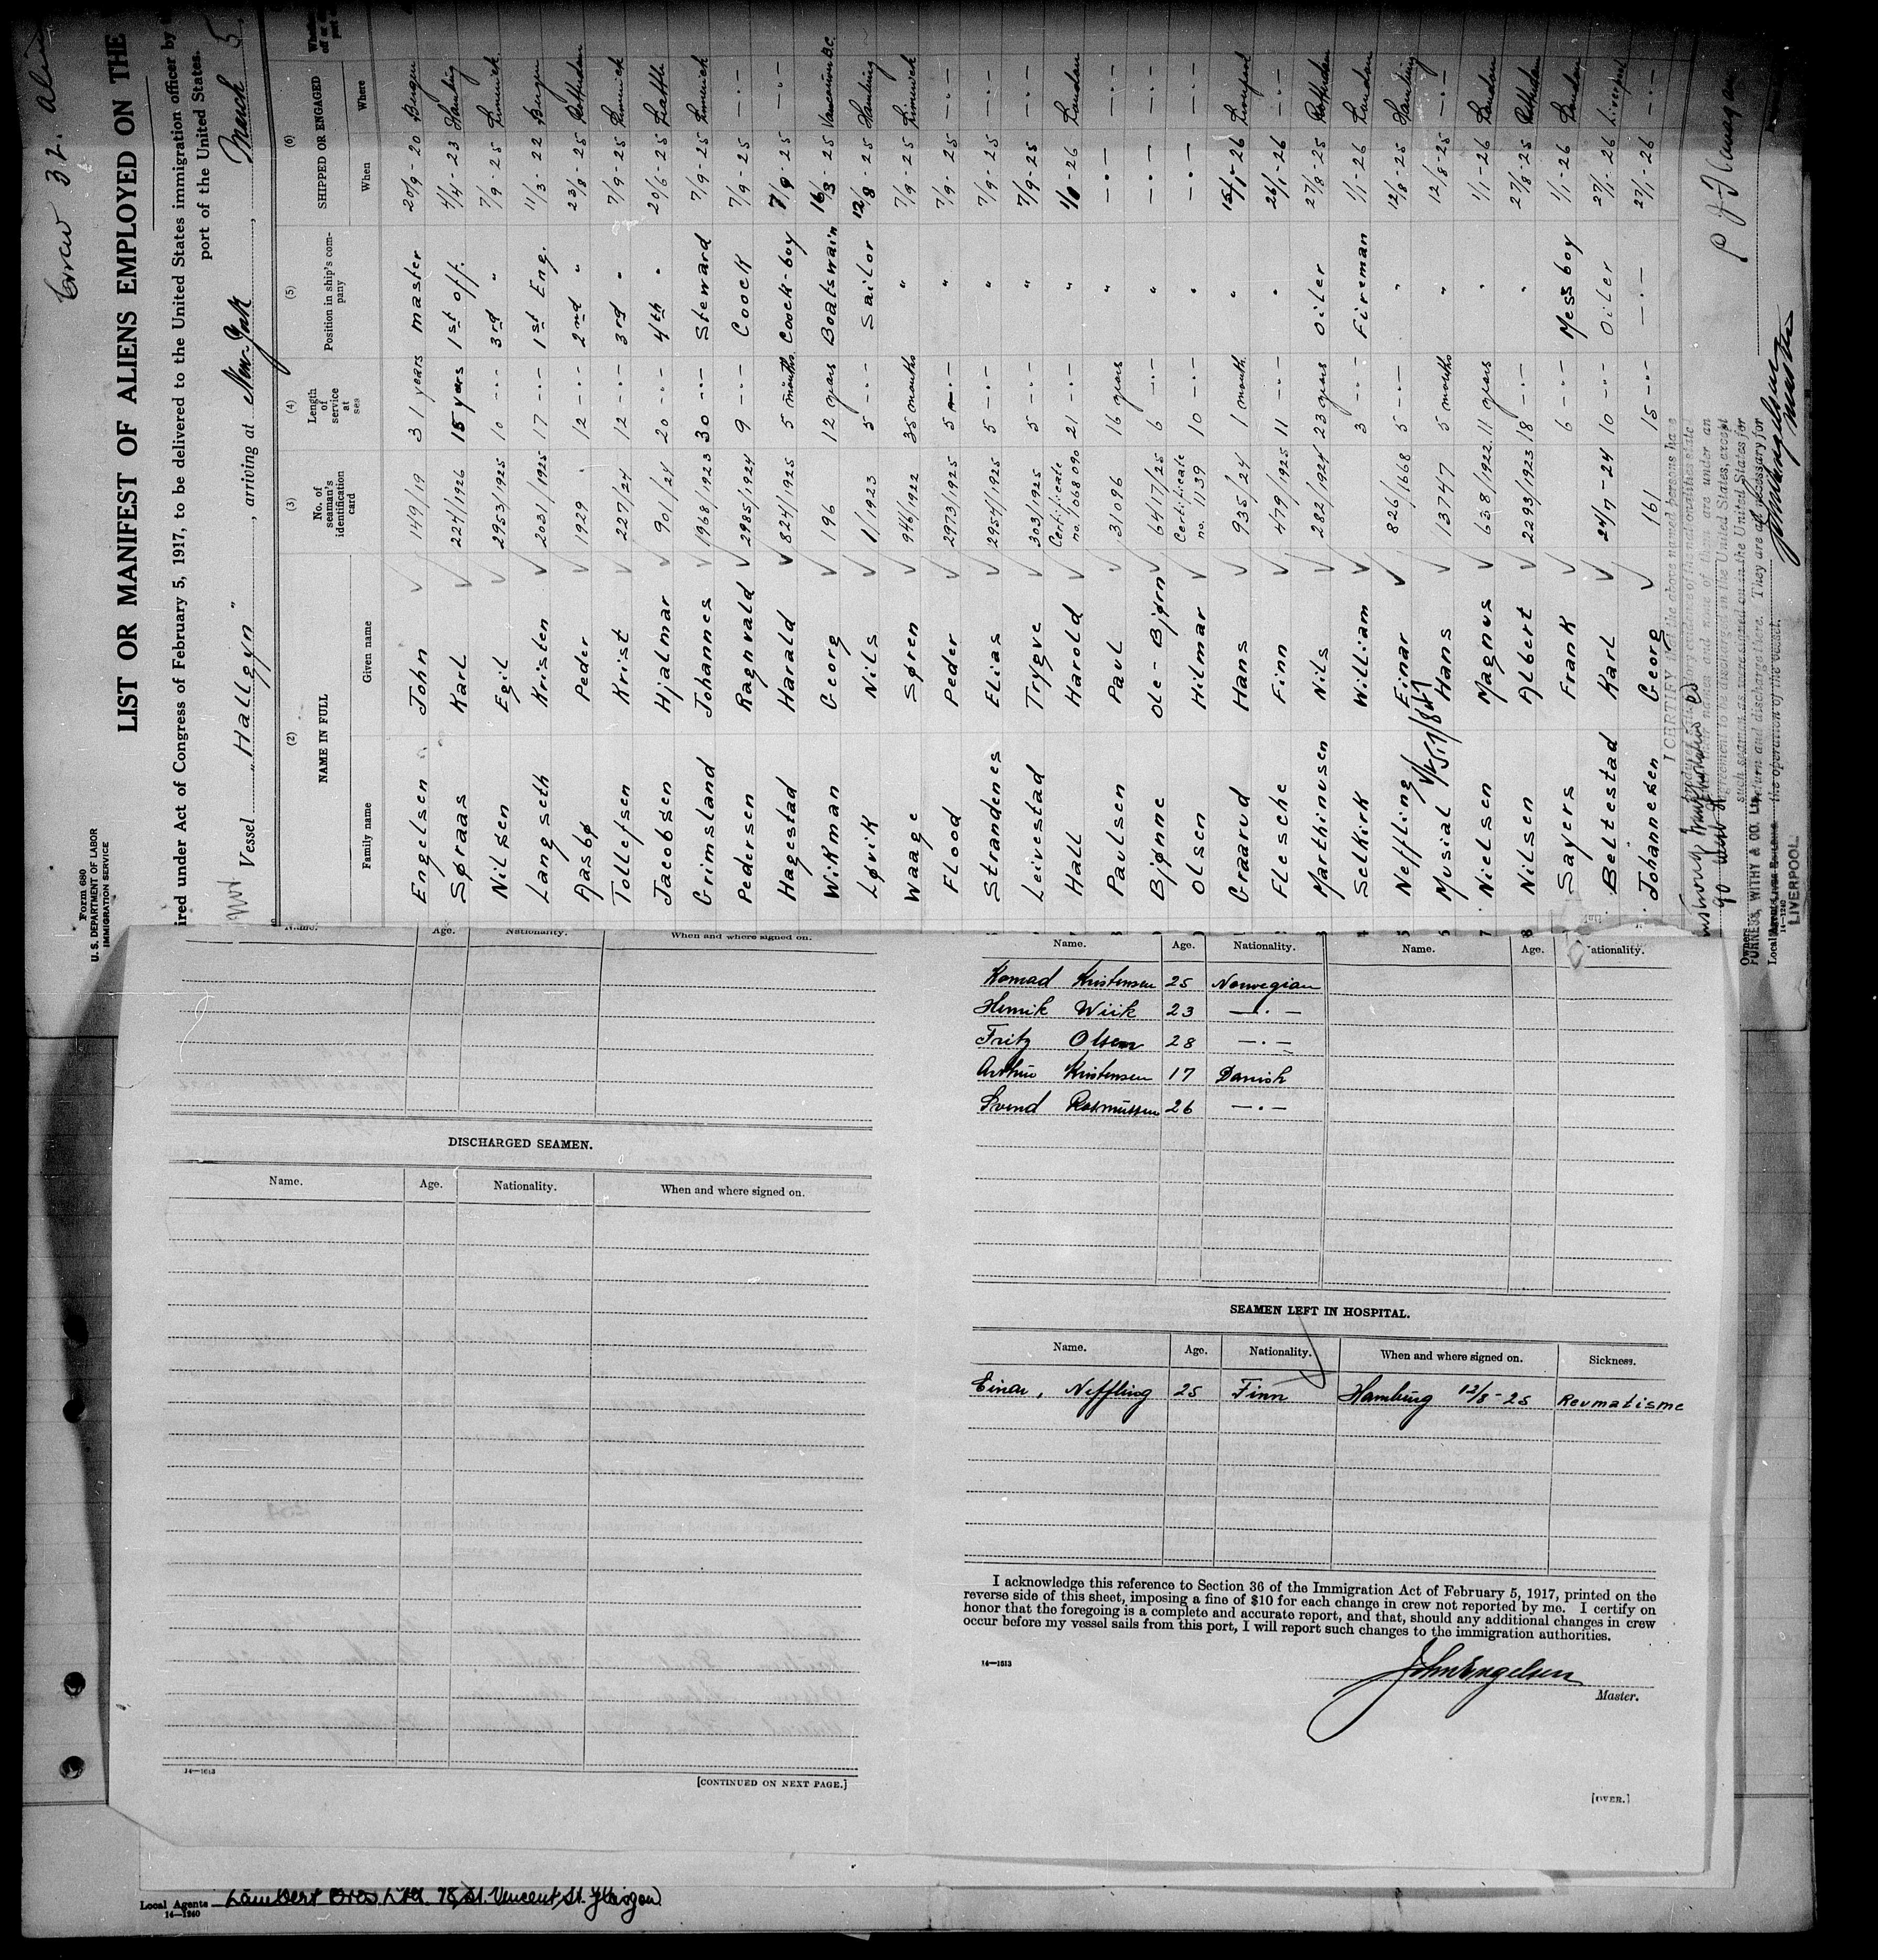 Crew 32.
Form 680
U. S. DEPARTMENT OF LABOR
IMMIGRATION SERVICE
LIST OR MANIFEST OF ALIENS EMPLOYED ON THE
ired under Act of Congress of February 5, 1917, to be delivered to the United States immigration officer by
port of the United States.
Vessel "Hallgyn", arriving at New-York, March 5
(2) (3) (4) (5) (6)
NAME IN FULL No. of seaman's identification card Length of service at sea Position in ship's company SHIPPED OR ENGAGED
Family name Given name When Where
Engelsen John 149/19 31 years master 20/9-20 Bergen
Søraas Karl 224/1926 15 years 1st off. 4/4-23 Hamburg
Nilsen Egil 2953/1925 10 -·- 3rd " 7/9-25 Limerick
Langseth Kristen 2031/1925 17 -·- 1st Eng. 11/3-22 Bergen
Aasbø Peder 1929 12 -·- 2nd " 23/8-25 Rotterdam
Tollefsen Krist 227/24 12 -·- 3rd " 7/9-25 Limerick
Jacobsen Hjalmar 901/24 20 -·- 4th " 20/6-25
Grimsland Johannes 1968/1923 30 -·- Steward 7/9-25 Limerick
Pedersen Ragnvald 2985/1924 9 -·- Coock 7/9-25 -·-
Hagestad Harald 824/1925 5 months Coock-boy 7/9-25 -·-
Wikman Georg 196 12 years Boatswain 16/3-25 Vancouver B.C.
Løvik Nils 1/1923 5 -·- Sailor 12/8-25 Hamburg
Waage Søren 946/1922 35 months " 7/9-25 Limerick
Flood Peder 2973/1925 5 -·- " 7/9-25 -·-
Strandenes Elias 2954/1925 5 -·- " 7/9-25 -·-
Leivestad Trygve 303/1925 5 -·- " 7/9-25 -·-
Hall Harold Certificate no. 1068090 21 -·- " London
Paulsen Paul 31096 16 years " -·- -·-
Bjønne Ole-Bjørn 6417/25 6 -·- " -·- -·-
Olsen Hilmar Certificate no. 1139 10 -·- " -·- -·-
Graarud Hans 935/24 1 month " 15/1-26 Liverpool
Flesche Finn 479/1925 11 -·- " 26/1-26 -·-
Marthinusen Nils 282/1924 23 years Oiler 27/8-25 Rotterdam
Selkirk William 3 -·- Fireman 1/1-26 London
Neffling Einar 826/1668 5 -·- " 12/8-25 Hamburg
Musial Hans 13747 5 months " 12/8-25 -·-
Nielsen Magnus 638/1922 11 years " 1/1-26 London
Nilsen Albert 2293/1923 18 -·- " 27/8-25 Rotterdam
Sayers Frank 6 -·- Messboy 1/1-26 London
Beltestad Karl 24/7-24 10 -·- Oiler 27/1-26 Liverpool
Johannesen Georg 161 15 -·- -·- 27/1-26 -·-
I CERTIFY that the above named persons have
agreement to be discharged in the United States, except
such seamen as were signed on in the United States for
return and discharge there. They are all necessary for
the operation of the vessel.
Owners
FURNESS, WITHY & CO. Ltd.
Local Agents
14—1240
LIVERPOOL
John Engelsen
Master
Name. Age. Nationality. When and where signed on.
DISCHARGED SEAMEN.
Name. Age. Nationality. When and where signed on.
14—1613
[CONTINUED ON NEXT PAGE.]
Name. Age. Nationality. Name. Age. Nationality.
Konrad Kristensen 25 Norwegian
Henrik Wiik 23 -·-
Fritz Olsen 28 -·-
Arthur Kristensen 17 Danish
Svend Rasmussen 26 -·-
SEAMEN LEFT IN HOSPITAL.
Name. Age. Nationality. When and where signed on. Sickness.
Einar, Neffling 25 Finn Hamburg 12/8-25 Reumatisme
I acknowledge this reference to Section 36 of the Immigration Act of February 5, 1917, printed on the
reverse side of this sheet, imposing a fine of $10 for each change in crew not reported by me. I certify on
honor that the foregoing is a complete and accurate report, and that, should any additional changes in crew
occur before my vessel sails from this port, I will report such changes to the immigration authorities.
14—1613
John Engelsen
Master.
[OVER.]
Local Agents Lambert Bros Ltd. 78, St. Vincent St. Glasgow
14—1240